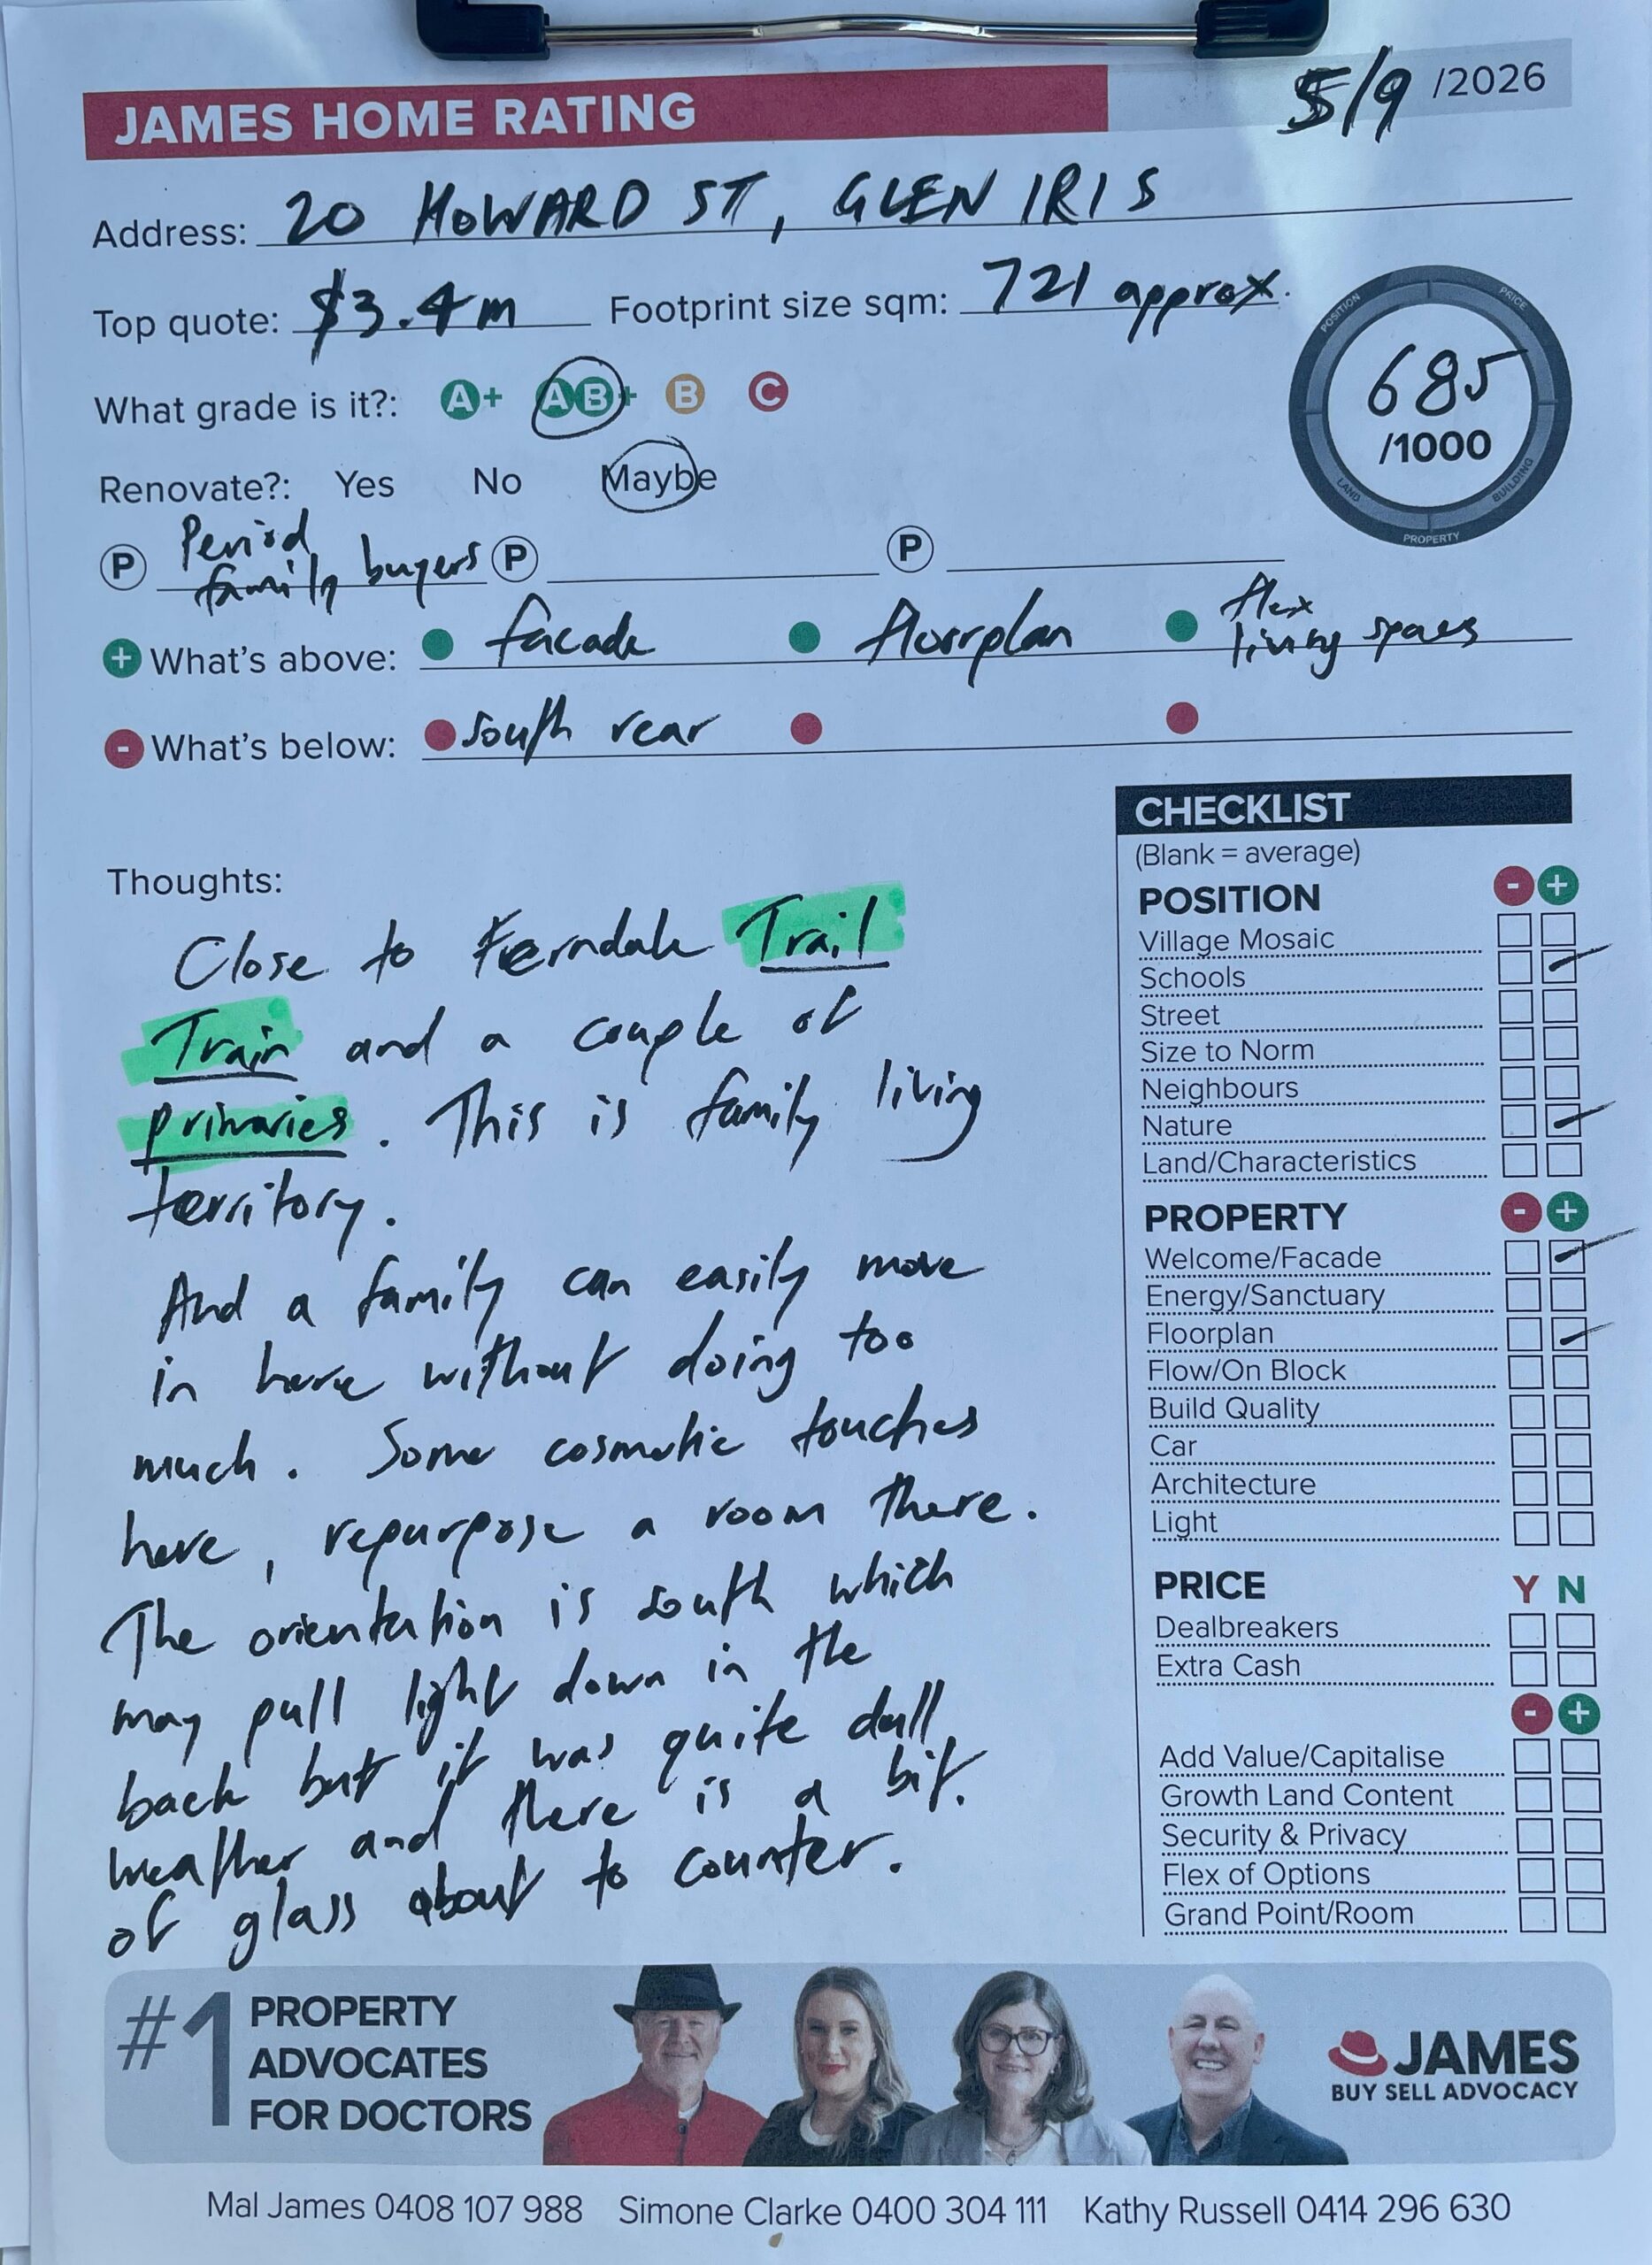 JAMES HOME RATING
5/9 /2026
Address: 20 HOWARD ST, GLEN IRIS
Top quote: $3.4m Footprint size sqm: 721 approx.
POSITION PRICE
685
/1000
LAND BUILDING
PROPERTY
What grade is it?: A+ AB+ B C
Renovate?: Yes No Maybe
P Period
family buyers P P
+ What's above: facade floorplan flex
living spaces
- What's below: south rear
Thoughts:
Close to Ferndale Trail
Train and a couple of
primaries. This is family living
territory.
And a family can easily move
in here without doing too
much. Some cosmetic touches
here, repurpose a room there.
The orientation is south which
may pull light down in the
back but it was quite dull
weather and there is a bit
of glass about to counter.
CHECKLIST
(Blank = average)
POSITION - +
Village Mosaic
Schools
Street
Size to Norm
Neighbours
Nature
Land/Characteristics
PROPERTY - +
Welcome/Facade
Energy/Sanctuary
Floorplan
Flow/On Block
Build Quality
Car
Architecture
Light
PRICE Y N
Dealbreakers
Extra Cash
- +
Add Value/Capitalise
Growth Land Content
Security & Privacy
Flex of Options
Grand Point/Room
#1 PROPERTY
ADVOCATES
FOR DOCTORS
JAMES
BUY SELL ADVOCACY
Mal James 0408 107 988 Simone Clarke 0400 304 111 Kathy Russell 0414 296 630